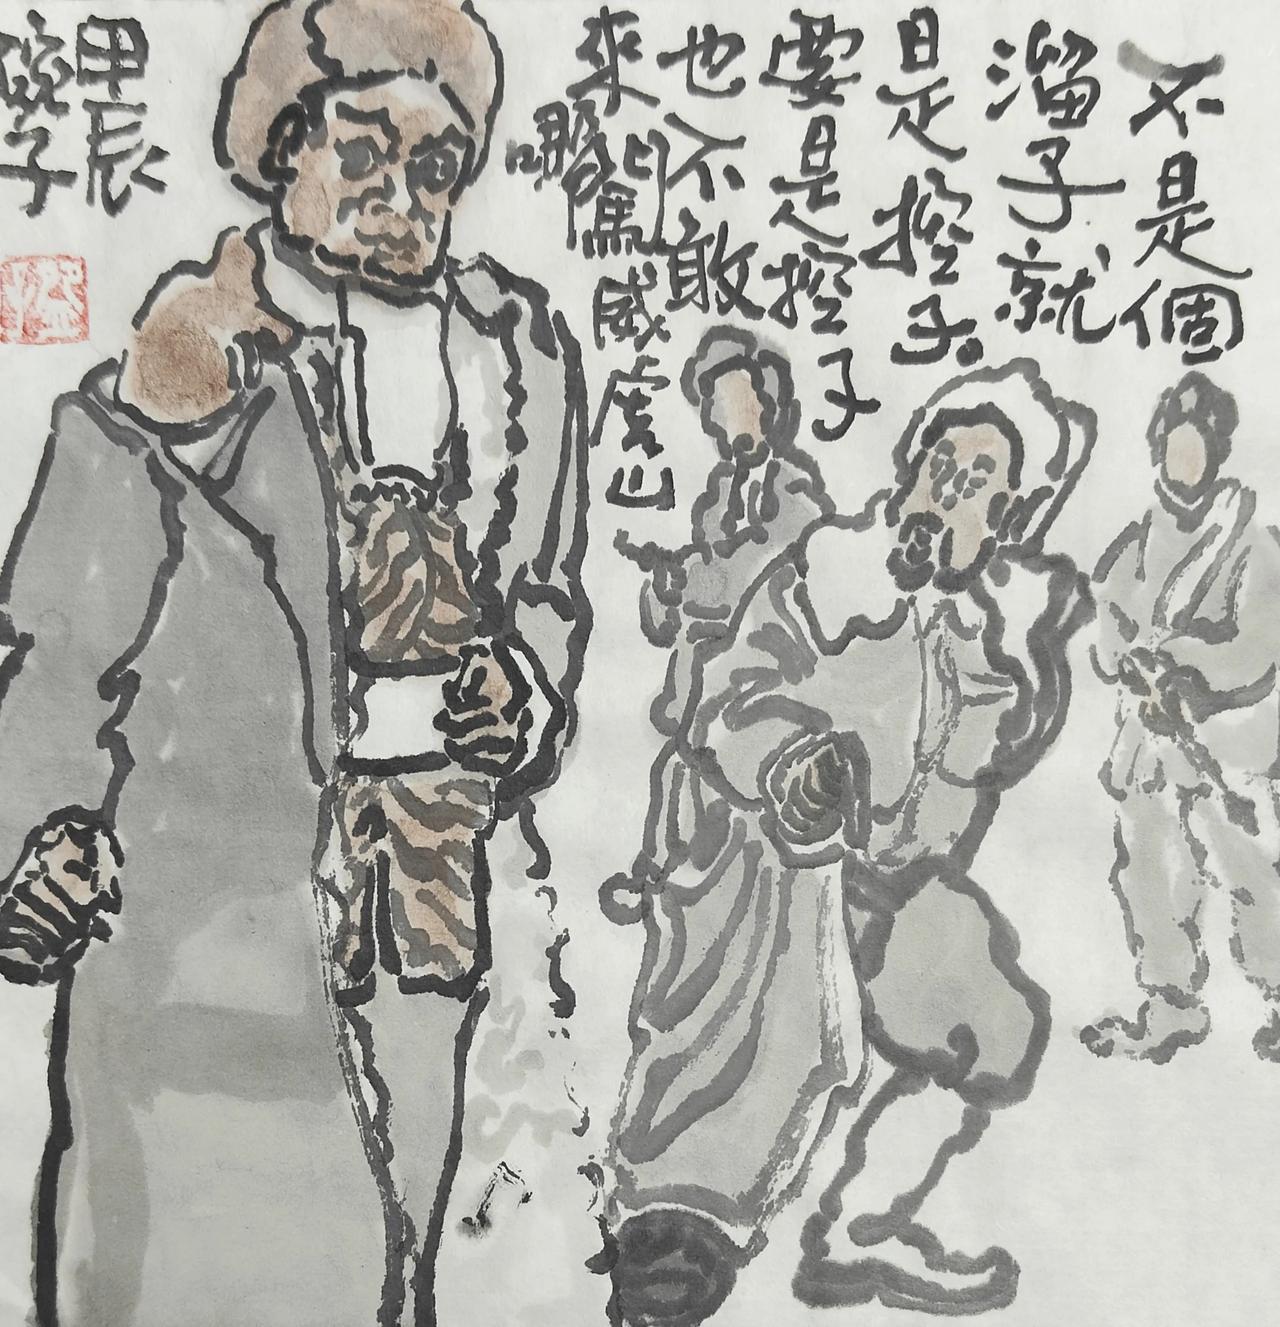 不是個
溜子就
是控子。
要是控子
也不敢
來闖威虎山
哪
甲辰